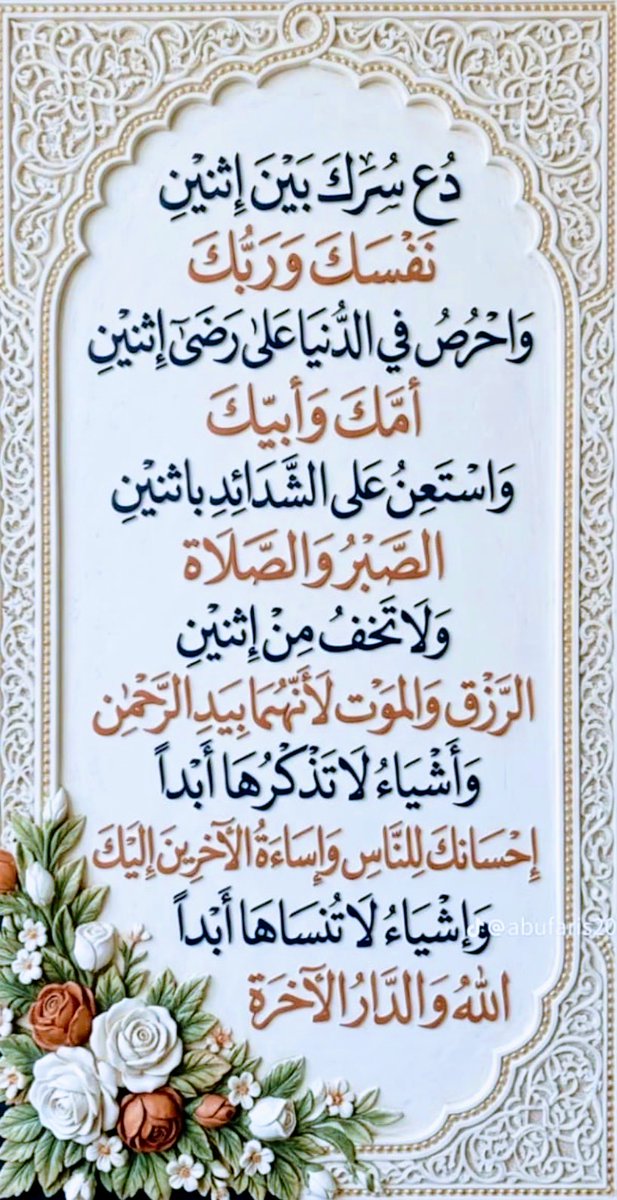 دُع سِرَكَ بَيْنَ إِثنيْنِ
نَفْسَكَ وَرَبُّكَ
وَاحْرُصُ في الدُّنيَا عَلىٰ رَضَىٓ إِثنيْنِ
أمّكَ وَأبيّكَ
وَاسْتَعِنُ عَلى الشَّدَائِدِ باثنيْنِ
الصَّبْرُ وَالصَّلَاة
وَلَا تَخفُ مِنْ إِثنيْنِ
الرَّزْق وَالموَت لَأنّهُمَا بِيَدِ الرَّحْمٰنِ
وَأَشْيَاءُ لَا تَذْكُرُهَا أَبْداً
إِحْسَانكَ لِلنَّاسِ وَإِسَاءَةُ الآخرِينَ إِليْكَ
وَإشْيَاءُ لَا تُنسَاهَا أَبْداً
اللهُ وَالدَّارُ الآخرَة
@abufaris20